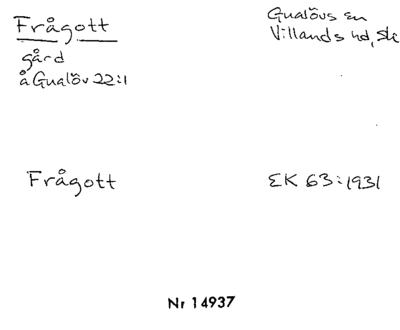 Frågott
Gualövs sn
Villands hd, Sk
gård
å Gualöv 22:1
Frågott
EK 63:1931
Nr 14937